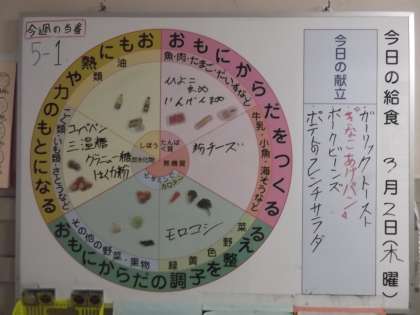 今日の給食 3月2日(木曜)
今日の献立
ガーリックトースト
きなこあげパン
ポークビーンズ
ポテトフレンチサラダ
今週の当番
5-1
おもにからだをつくる
魚・肉・たまご・だいずなど
牛乳・小魚・海そうなど
ひよこ
まめ
いんげんまめ
粉チーズ
おもに熱や力のもとになる
油
類
こく類・いも類・さとうなど
コッペパン
三温糖
グラニュー糖
はくりき粉
しぼう
たんぱく質
炭水化物
無機質
カロテン
おもにからだの調子を整える
緑黄色野菜
その他の野菜・果物
モロコシ